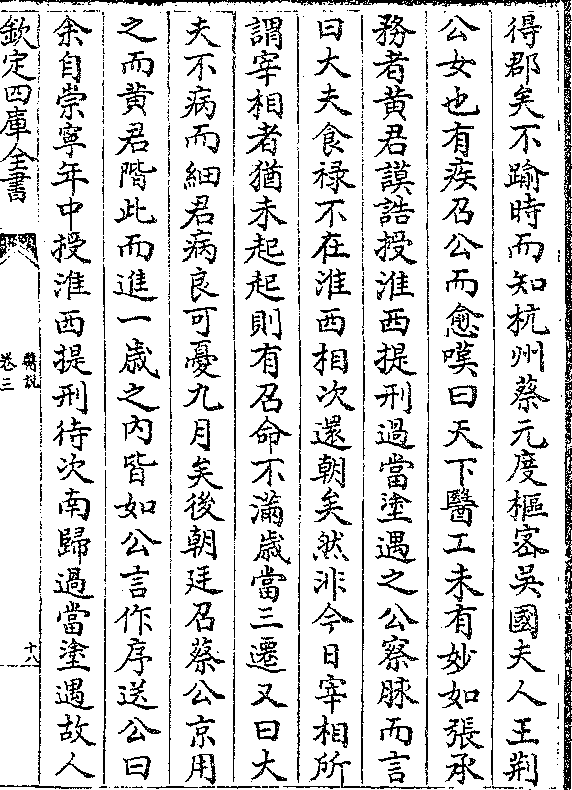 得郡矣不踰時而知杭州蔡元度樞密吳國夫人王荆
公女也有疾召公而愈嘆曰天下醫工未有妙如張承
務者黄君謨誥授淮西提刑過當塗遇之公察脉而言
曰大夫食祿不在淮西相次還朝矣然非今日宰相所
謂宰相者猶未起起則有召命不滿歲當三遷又曰大
夫不病而細君病良可憂九月矣後朝廷召蔡公京用
之而黄君階此而進一歲之内皆如公言作序送公曰
余自崇寧年中授淮西提刑待次南歸過當塗遇故人
欽定四庫全書
醫說
卷三
十八